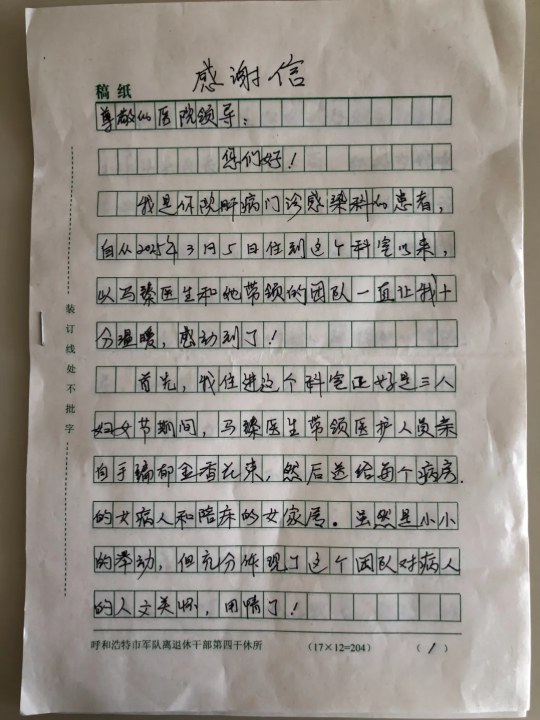 感谢信
稿纸
尊敬的医院领导：
您们好！
我是你院肝病门诊感染科的患者，
自从2025年3月5日住到这个科室以来，
以马臻医生和她带领的团队一直让我十
分温暖，感动到了！
首先，我住进这个科室正好是三八
妇女节期间，马臻医生带领医护人员亲
自手编郁金香花束，然后送给每个病房.
的女病人和陪床的女家属。虽然是小小
的举动，但充分体现了这个团队对病人
的人文关怀，用情了！
装订线处不批字
呼和浩特市军队离退休干部第四干休所 (17×12=204) (1)